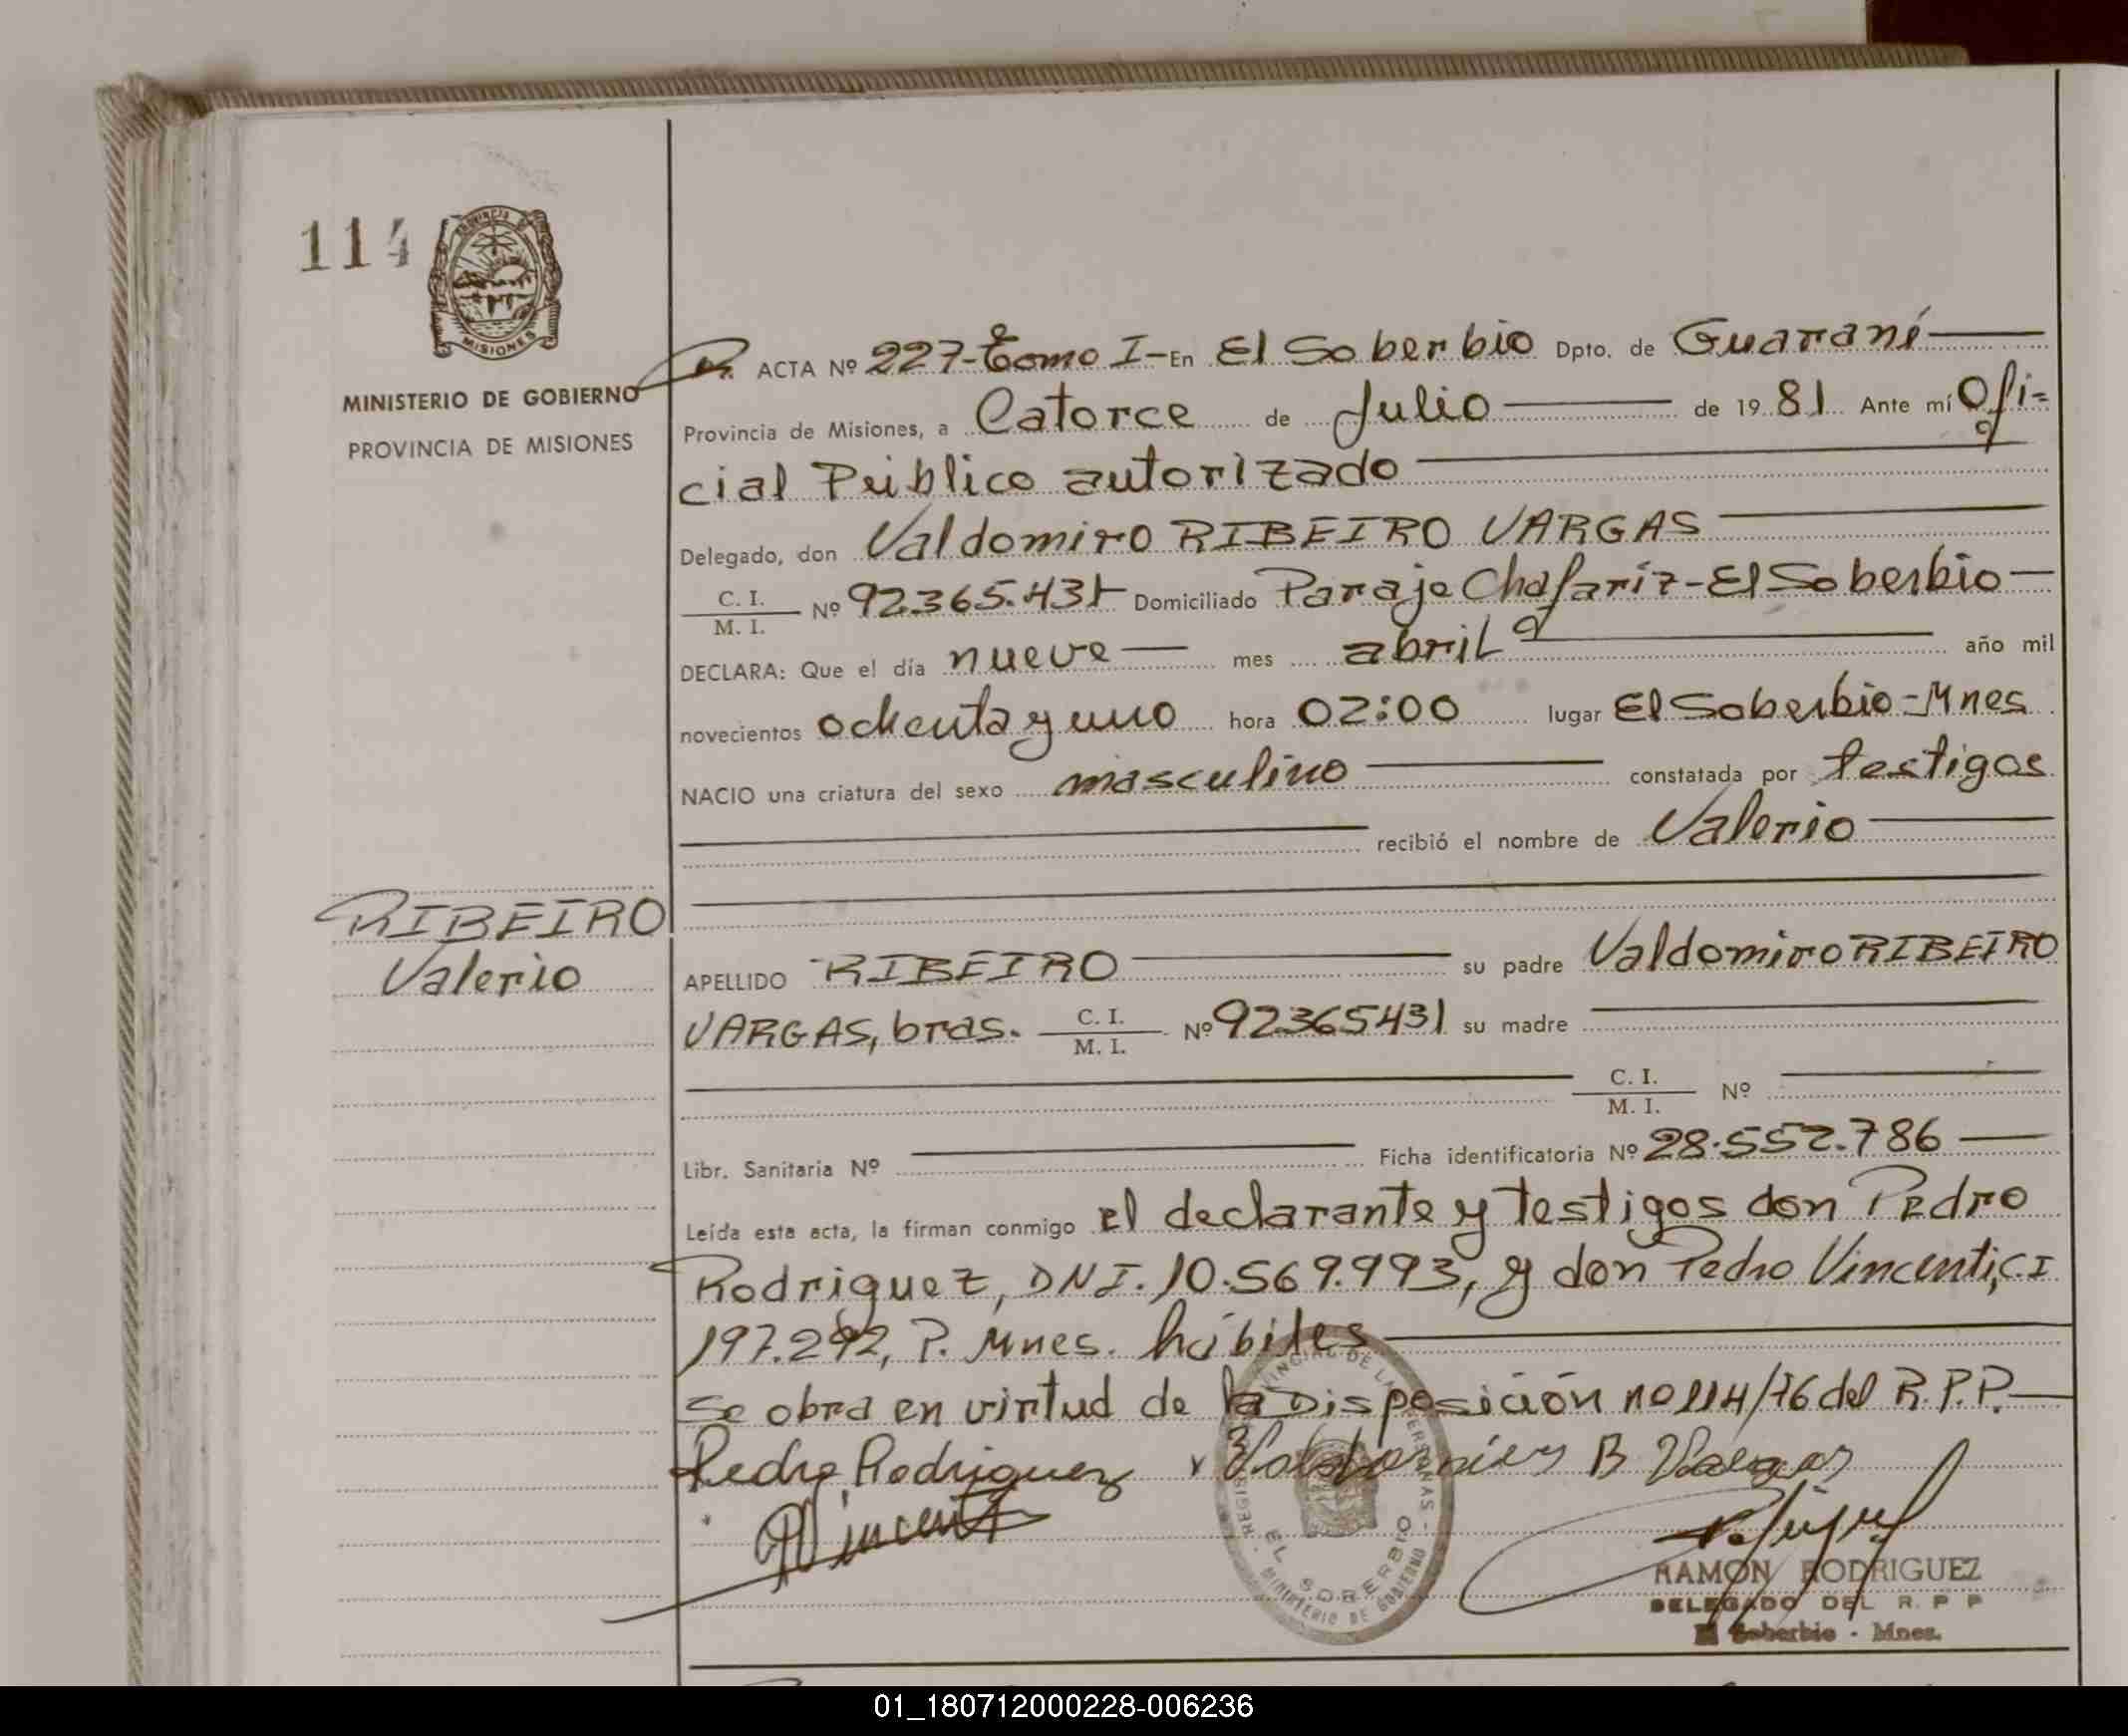 114
PROVINCIA DE
MISIONES
MINISTERIO DE GOBIERNO
PROVINCIA DE MISIONES
RIBEIRO
Valerio
ACTA Nº 227-Tomo I- En El Soberbio Dpto. de Guaraní
Provincia de Misiones, a Catorce de Julio de 1981 Ante mí Ofi=
cial Público autorizado
Delegado, don Valdomiro RIBEIRO VARGAS
C. I. / M. I. Nº 92.365.431 Domiciliado Paraje Chafaríz-El Soberbio
DECLARA: Que el día nueve mes abril año mil
novecientos ochenta y uno hora 02:00 lugar El Soberbio-Mnes
NACIO una criatura del sexo masculino constatada por testigos
recibió el nombre de Valerio
APELLIDO RIBEIRO su padre Valdomiro RIBEIRO
VARGAS, bras. C. I. / M. I. Nº 92365431 su madre
C. I. / M. I. Nº
Libr. Sanitaria Nº Ficha identificatoria Nº 28.552.786
Leída esta acta, la firman conmigo el declarante y testigos don Pedro
Rodriguez, DNI. 10.569.993, y don Pedro Vincenti, C.I
197.292, P. Mnes. hábiles
Se obra en virtud de la Disposición no 114/76 del R.P.P.
Pedro Rodriguez
Vincenti
EL SOBERBIO
MINISTERIO DE GOBIERNO
RAMON RODRIGUEZ
DELEGADO DEL R. P P
El Soberbio - Mnes.
01_180712000228-006236